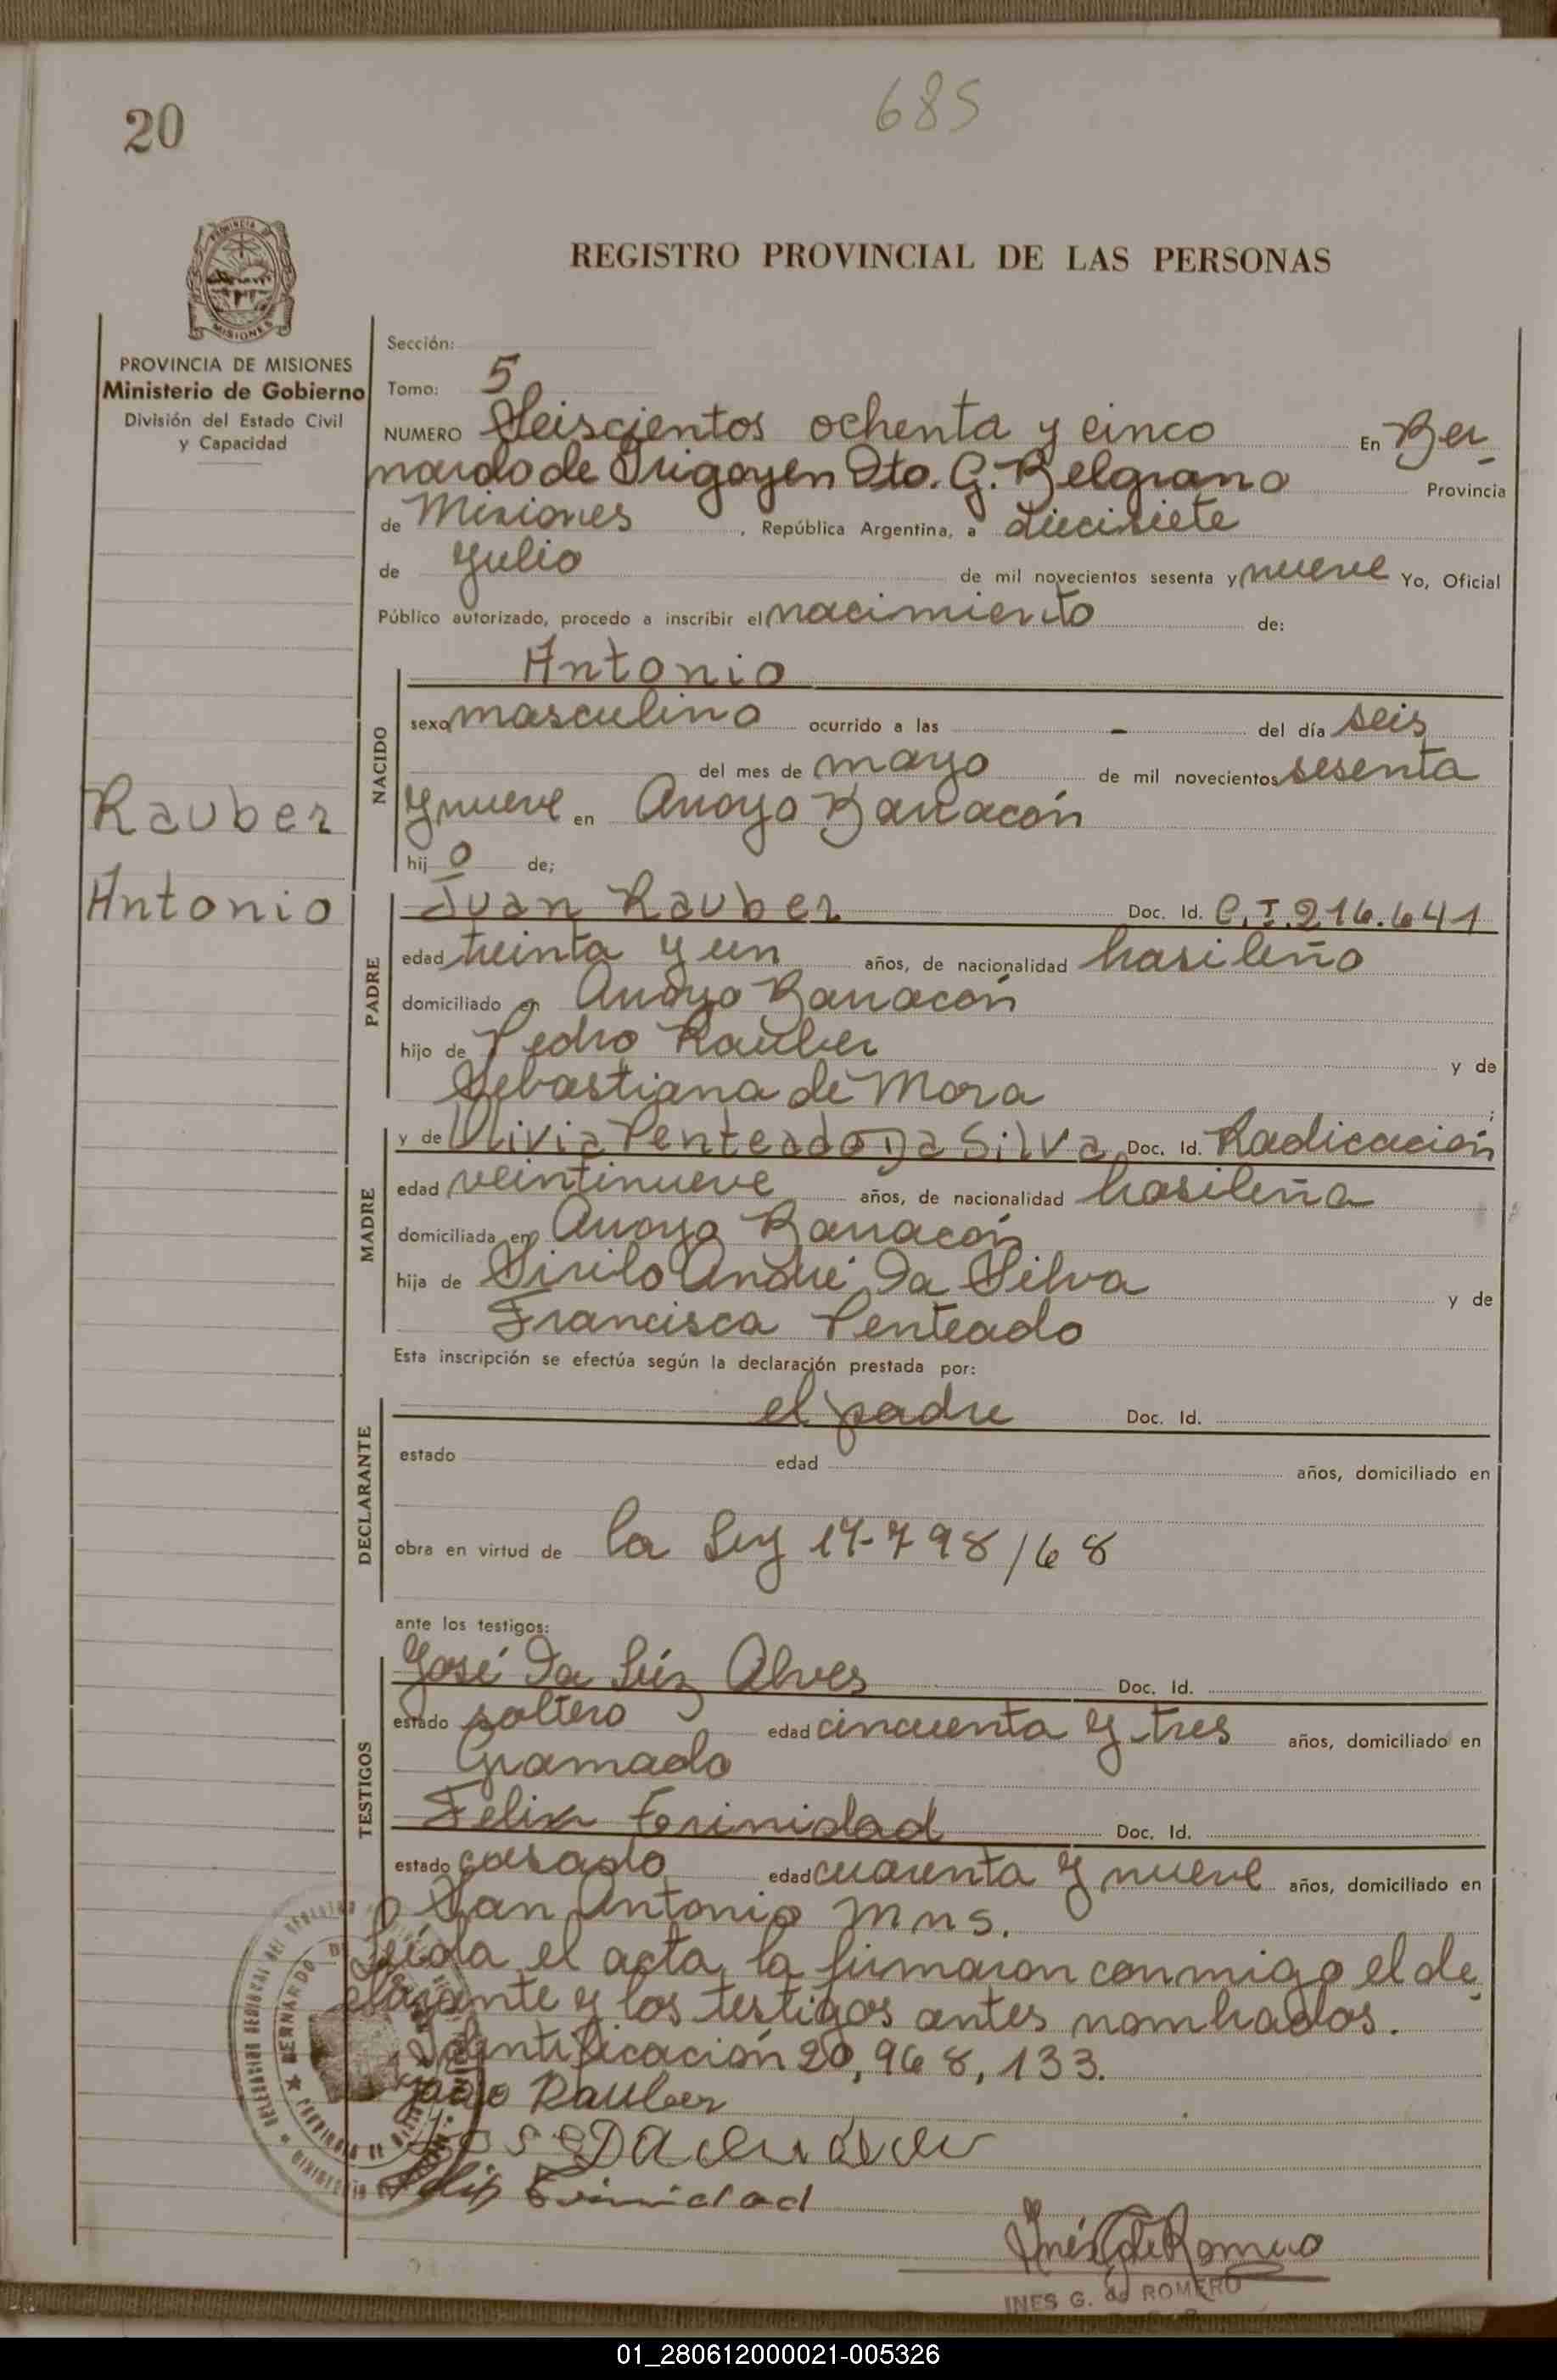 20
685
REGISTRO PROVINCIAL DE LAS PERSONAS
MISIONES
PROVINCIA DE MISIONES
Ministerio de Gobierno
División del Estado Civil
y Capacidad
Sección:
Tomo: 5
NUMERO Seiscientos ochenta y cinco En Ber
nardo de Irigoyen Dto. G. Belgrano Provincia
de Misiones, República Argentina, a diecisiete
de Julio de mil novecientos sesenta y nueve Yo, Oficial
Público autorizado, procedo a inscribir el nacimiento de:
NACIDO
Antonio
sexo masculino ocurrido a las - del día seis
del mes de mayo de mil novecientos sesenta
y nueve en Arroyo Barracón
hijo de;
Rauber
Antonio
PADRE
Juan Rauber Doc. Id. C.I. 216.641
edad treinta y un años, de nacionalidad brasileño
domiciliado en Arroyo Barracón
hijo de Pedro Rauber y de
Sebastiana de Mora;
MADRE
y de Olivia Penteado Da Silva Doc. Id. Radicación
edad veintinueve años, de nacionalidad brasileña
domiciliada en Arroyo Barracón
hija de Sirilo André Da Silva y de
Francisca Penteado
Esta inscripción se efectúa según la declaración prestada por:
DECLARANTE
el padre Doc. Id.
estado edad años, domiciliado en
obra en virtud de la Ley 17-798/68
ante los testigos:
TESTIGOS
José Da Lúz Alves Doc. Id.
estado soltero edad cincuenta y tres años, domiciliado en
Gramado
Felix Trinidad Doc. Id.
estado casado edad cuarenta y nueve años, domiciliado en
San Antonio Mns.
Leída el acta, la firmaron conmigo el de
clarante y los testigos antes nombrados.
Identificación 20,968,133.
João Rauber
Jose Da
Felix Trinidad
Inés G. de Romero
INES G. de ROMERO
01_280612000021-005326